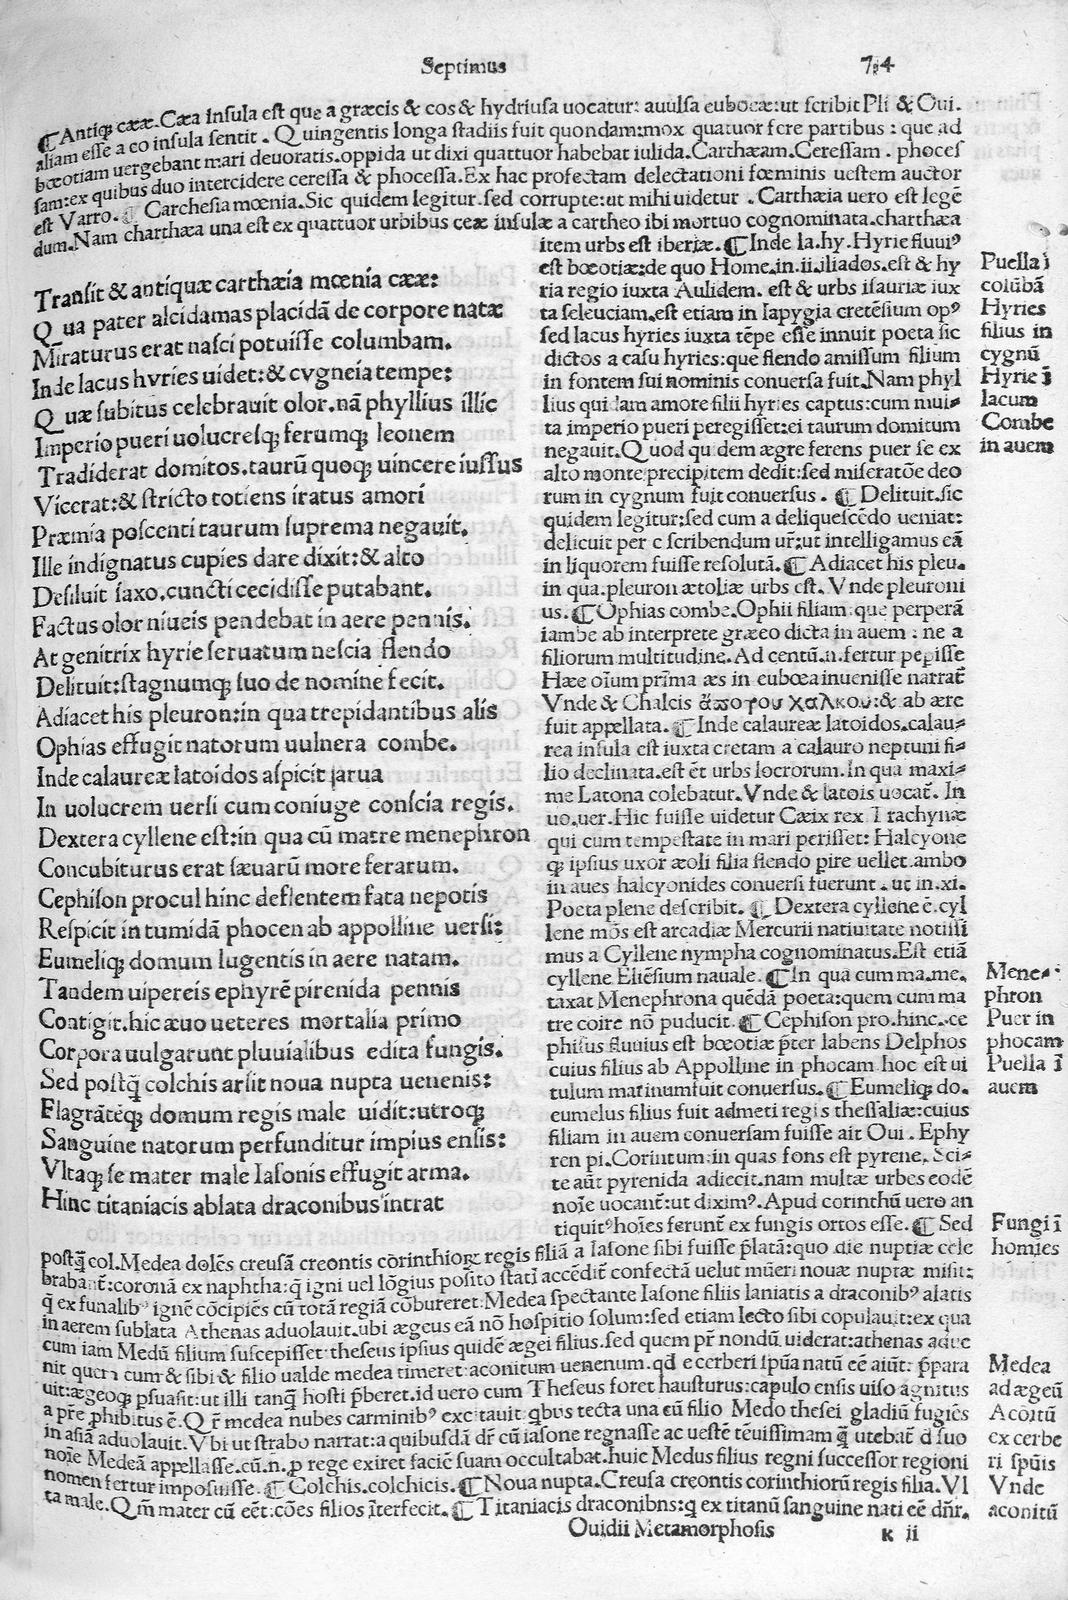 Septimus 74
¶Antiq; cææ. Cæa insula est que a græcis & cos & hydriusa uocatur: auulsa eubocæ: ut scribit Pli & Oui.
aliam esse a eo insula sentit. Quingentis longa stadiis fuit quondam: mox quatuor fere partibus: que ad
bœotiam uergebant mari deuoratis. oppida ut dixi quattuor habebat iulida. Carthæam. Ceressam. phocef
sam: ex quibus duo intercidere ceressa & phocessa. Ex hac profectam delectationi fœminis uestem auctor
est Varro. ¶ Carchesia mœnia. Sic quidem legitur. sed corrupte: ut mihi uidetur. Carthæia uero est legē
dum. Nam charthæa una est ex quattuor urbibus ceæ insulæ a cartheo ibi mortuo cognominata. charthæa
Transit & antiquæ carthæia mœnia cææ:
Qua pater alcidamas placidā de corpore natæ
Miraturus erat nasci potuisse columbam.
Inde lacus hyries uidet: & cygneia tempe:
Quæ subitus celebrauit olor. nā phyllius illic
Imperio pueri uolucresq; ferumq; leonem
Tradiderat domitos. taurū quoq; uincere iussus
Vicerat: & stricto totiens iratus amori
Præmia poscenti taurum suprema negauit.
Ille indignatus cupies dare dixit: & alto
Desiluit saxo. cuncti cecidisse putabant.
Factus olor niueis pendebat in aere pennis.
At genitrix hyrie seruatum nescia flendo
Delituit: stagnumq; suo de nomine fecit.
Adiacet his pleuron: in qua trepidantibus alis
Ophias effugit natorum uulnera combe.
Inde calaureæ latoidos aspicit jarua
In uolucrem uersi cum coniuge conscia regis.
Dextera cyllene est: in qua cū matre menephron
Concubiturus erat sæuarū more ferarum.
Cephison procul hinc deflentem fata nepotis
Respicit in tumidā phocen ab appolline uersi:
Eumeliq; domum lugentis in aere natam.
Tandem uipereis ephyrē pirenida pennis
Contigit. hic æuo ueteres mortalia primo
Corpora uulgarunt pluuialibus edita fungis.
Sed postq̄ colchis arsit noua nupta uenenis:
Flagrātēq; domum regis male uidit: utroq;
Sanguine natorum perfunditur impius ensis:
Vltaq; se mater male Iasonis effugit arma.
Hinc titaniacis ablata draconibus intrat
item urbs est iberiæ. ¶Inde la. hy. Hyrie fluuiꝰ
est bœotiæ: de quo Home. in. ii. iliados. est & hy
ria regio iuxta Aulidem. est & urbs isauriæ iux
ta seleuciam. est etiam in Iapygia cretēsium opꝰ
sed lacus hyries iuxta tēpe esse innuit poeta sic
dictos a casu hyries: que flendo amissum filium
in fontem sui nominis conuersa fuit. Nam phyl
lius qui Iam amore filii hyries captus: cum mul-
ta imperio pueri peregisset: ei taurum domitum
negauit. Quod quidem ægre ferens puer se ex
alto monte precipitem dedit: sed miseratōe deo
rum in cygnum fuit conuersus. ¶ Delituit. sic
quidem legitur: sed cum a deliquescēdo ueniat:
delicuit per c scribendum ur̄: ut intelligamus eā
in liquorem fuisse resolutā. ¶Adiacet his pleu.
in qua. pleuron ætoliæ urbs est. Vnde pleuroni
us. ¶Ophias combe. Ophii filiam: que perperā
iambe ab interprete græeo dicta in auem: ne a
filiorum multitudine. Ad centū. n. fertur pepisse
Hæe oīum prima æs in eubœa inuenisse narrat̄
Vnde & Chalcis ἄποτου χαλκου: & ab ære
fuit appellata. ¶Inde calaureæ latoidos. calau-
rea insula est iuxta cretam a calauro neptuni fi-
lio declinata. est ēt urbs locrorum. In qua maxi-
me Latona colebatur. Vnde & latois uocat̄. In
uo. uer. Hic fuisse uidetur Cæix rex Trachynæ
qui cum tempestate in mari perisset: Halcyone
q; ipsius uxor æoli filia flendo pire uellet. ambo
in aues halcyonides conuersi fuerunt. ut in. xi.
Poeta plene describit. ¶ Dextera cyllene ē. cyl
lene mōs est arcadiæ Mercurii natiuitate notissi
mus a Cyllene nympha cognominatus. Est etiā
cyllene Eliēsium nauale. ¶In qua cum ma. me.
taxat Menephrona quēdā poeta: quem cum ma
tre coire nō puducit. ¶ Cephison pro. hinc. ce
phisus fluuius est bœotiæ p̄ter labens Delphos
cuius filius ab Appolline in phocam hoc est ui
tulum marinum fuit conuersus. ¶Eumeliq; do.
eumelus filius fuit admeti regis thessaliæ: cuius
filiam in auem conuersam fuisse ait Oui. Ephy
ren pi. Corintum: in quas fons est pyrene. Sci-
te aūt pyrenida adiecit. nam multæ urbes eodē
noīe uocant̄: ut diximꝰ. Apud corinthū uero an
tiquitꝰ hoīes ferunt̄ ex fungis ortos esse. ¶ Sed
Puella ī
colūbā
Hyries
filius in
cygnū
Hyrie ī
lacum
Combe
in auem
Mene-
phron
Puer in
phocam
Puella ī
auem
Fungi ī
homies
postq̄ col. Medea dolēs creusā creontis corinthior̄ regis filiā a Iasone sibi fuisse p̄latā: quo die nuptiæ cele
brabant̄: coronā ex naphtha: q̄ igni uel lōgius posito stati accēdit̄ confectā uelut mūeri nouæ nuptæ misit:
q̄ ex funalibꝰ ignē cōcipiēs cū totā regiā cōbureret: Medea spectante Iasone filiis laniatis a draconibꝰ alatis
in aerem sublata Athenas aduolauit. ubi ægeus eā nō hospitio solum: sed etiam lecto sibi copulauit: ex qua
cum iam Medū filium suscepisset: theseus ipsius quidē ægei filius. sed quem pr̄ nondū uiderat: athenas adue
nit quem cum & sibi & filio ualde medea timeret: aconitum uenenum. qd e cerberi spūa natū eē aiūt: p̄para
uit: ægeoq; psuasit: ut illi tanq̄ hosti p̄beret. id uero cum Theseus foret hausturus: capulo ensis uiso agnitus
a pr̄e phibitus ē. Qr̄ medea nubes carminibꝰ excitauit qbus tecta una cū filio Medo thesei gladiū fugiēs
in asiā aduolauit. Vbi ut strabo narrat: a quibusdā dr̄ cū iasone regnasse ac uestē tēuissimam q̄ utebat̄ d̄ suo
noīe Medeā appellasse. cū. n. p rege exiret faciē suam occultabat. huic Medus filius regni successor regioni
nomen fertur imposuisse. ¶ Colchis. colchicis. ¶Noua nupta. Creusa creontis corinthiorū regis filia. Vl
ta male. Qm̄ mater cū eēt: cōes filios īterfecit. ¶Titaniacis draconibns: q ex titanū sanguine nati eē dn̄r.
Medea
ad ægeū
Acōitū
ex cerbe
ri spūis
Vnde
aconitū
Ouidii Metamorphosis k ii